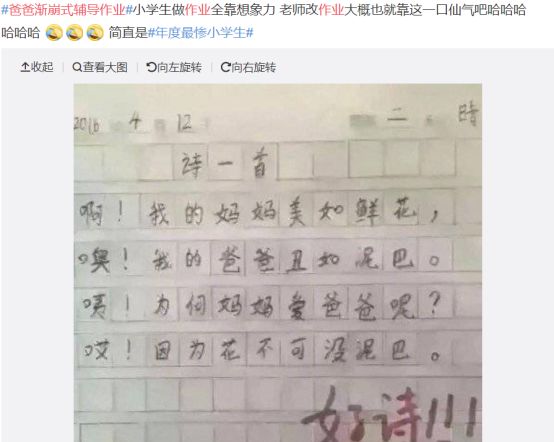 #爸爸渐崩式辅导作业#小学生做作业全靠想象力 老师改作业大概也就靠这一口仙气吧哈哈哈
哈哈哈 简直是#年度最惨小学生#
收起 查看大图 向左旋转 向右旋转
2016 4 12 二 晴
诗一首
啊！我的妈妈美如鲜花，
噢！我的爸爸丑如泥巴。
咦！为何妈妈爱爸爸呢？
哎！因为花不可没泥巴。
好诗!!!